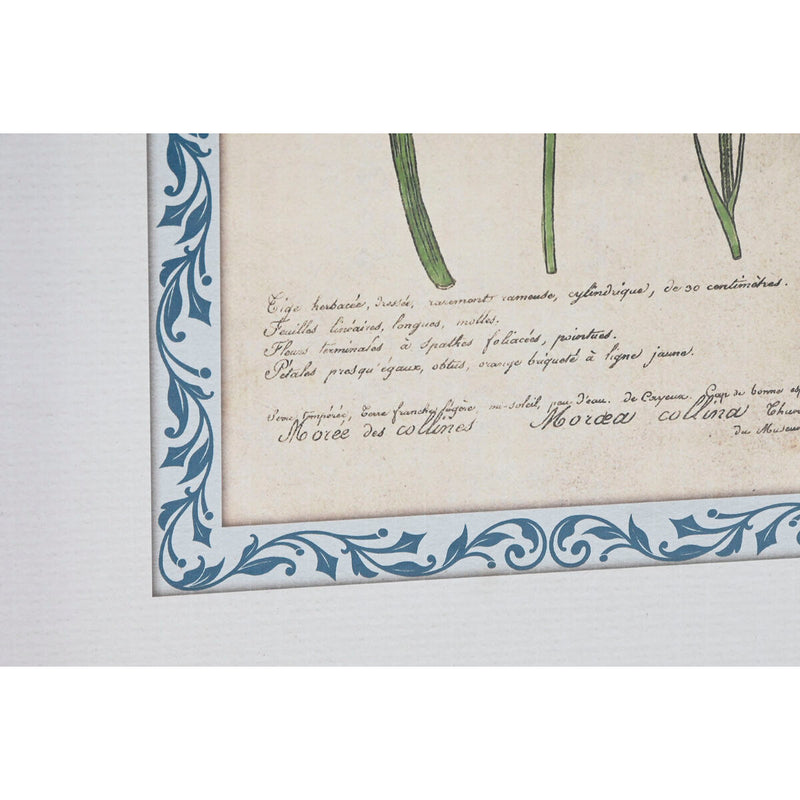 Tige herbacée, dressée, rarement rameuse, cylindrique, de 30 centimètres.
Feuilles linéaires, longues, molles.
Fleurs terminales à spathes foliacées, pointues.
Pétales presqu'égaux, obtus, orange briqueté à ligne jaune.
Serre tempérée, Terre franche, mi-soleil, peu d'eau. de Cayeux. Cap de bonne
Morée des collines Moræa collina
du Museu